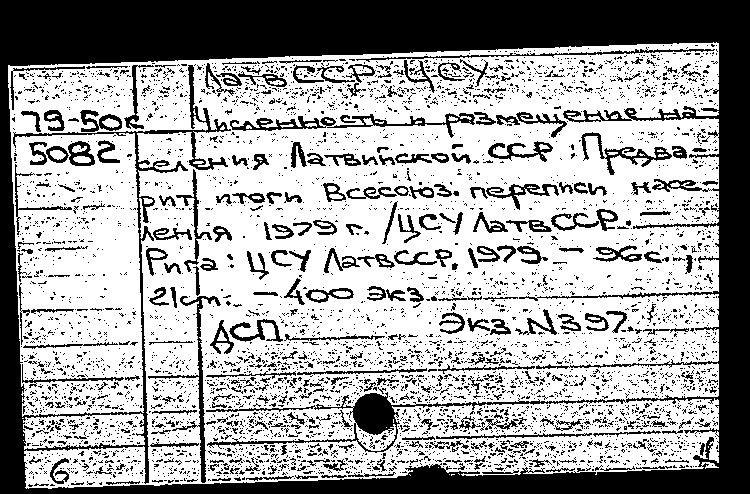 ЛатвССР. ЦСУ
79-50с Численность и размещение на-
5082 селения Латвийской ССР : Предва-
рит. итоги Всесоюз. переписи насе-
ления 1979 г. /ЦСУ ЛатвССР. —
Рига : ЦСУ ЛатвССР, 1979. — 96с. ;
21см. — 400 экз.
ДСП. Экз. N397.
6